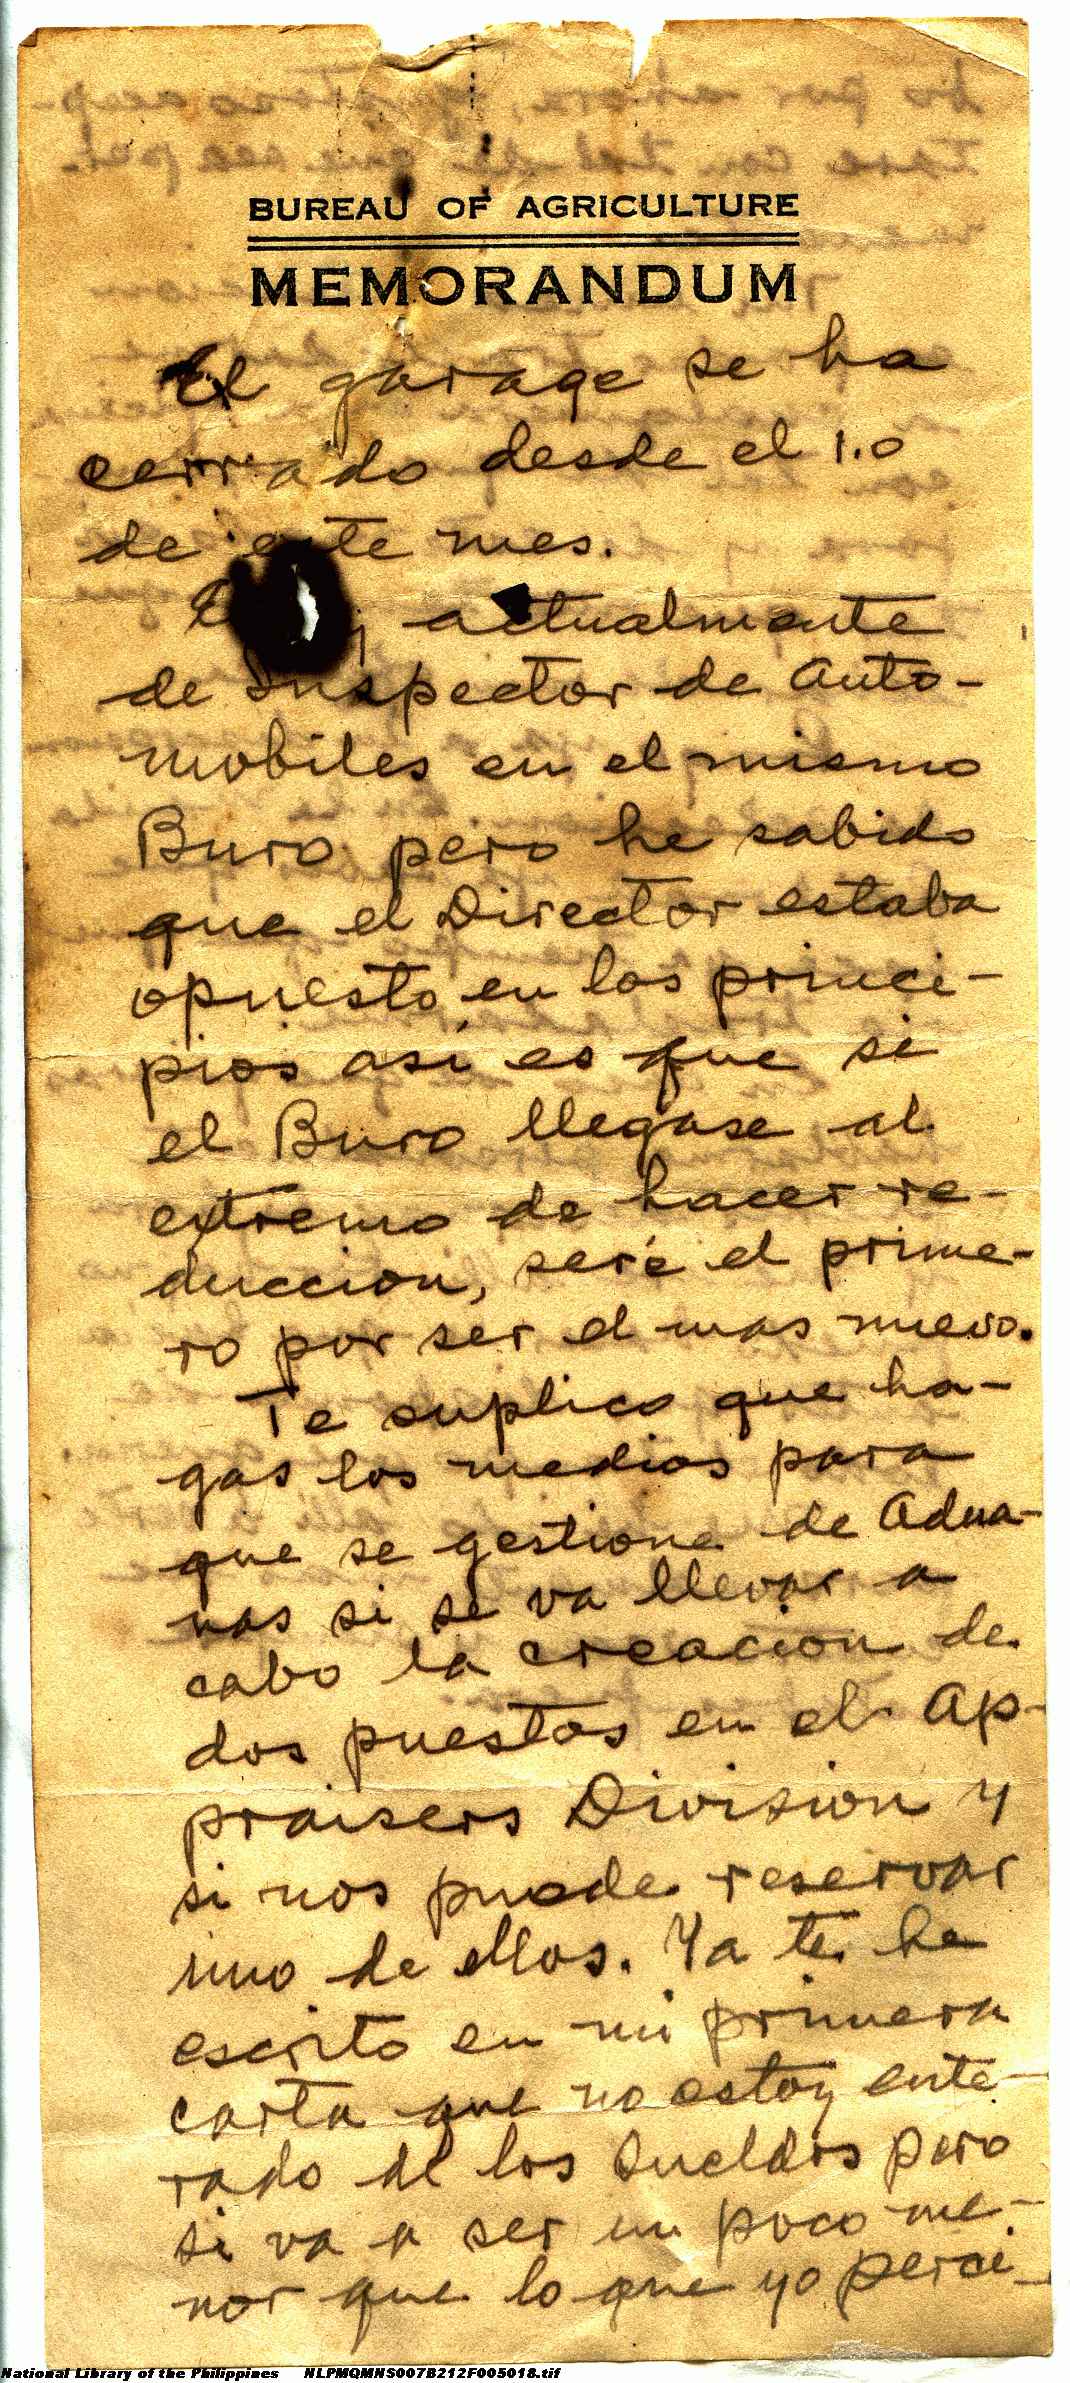 BUREAU OF AGRICULTURE
MEMORANDUM
El garage se ha
cerrado desde el 1.o
de este mes.
actualmente
de Inspector de Auto-
mobiles en el mismo
Buro pero he sabido
que el Director estaba
opuesto en los princi-
pios así es que si
el Buro llegase al
extremo de hacer re-
duccion, seré el prime-
ro por ser el mas nuevo.
Te suplico que ha-
gas los medios para
que se gestione de Adua-
nas si se va llevar a
cabo la creacion de
dos puestos en el Ap-
praisers Division y
si nos puede reservar
uno de ellos. Ya te he
escrito en mi primera
carta que no estoy ente-
rado de los sueldos pero
si va a ser un poco me-
nor que lo que yo perci-
National Library of the Philippines NLPMQMNS007B212F005018.tif